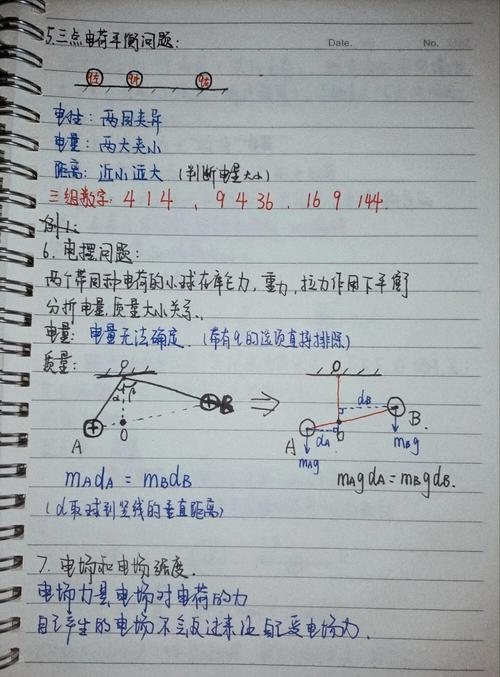 5.三点电荷平衡问题:
Date.
No.
q左 q中 q右
电性: 两同夹异
电量: 两大夹小
距离: 近小远大 (判断电量大小)
三组数字: 4 1 4 , 9 4 36 , 16 9 144
例1:
6. 电摆问题:
两个带同种电荷的小球在库仑力,重力,拉力作用下平衡
分析电量,质量大小关系.
电量: 电量无法确定. (带有q的选项直接排除)
质量:
O O
α β
dB
A O B
A dA O B.
mAg mBg
mAdA = mBdB mAgdA = mBgdB.
(d取球到竖线的垂直距离)
7. 电场和电场强度.
电场力是电场对电荷的力
自己产生的电场不会反过来让自己受电场力.